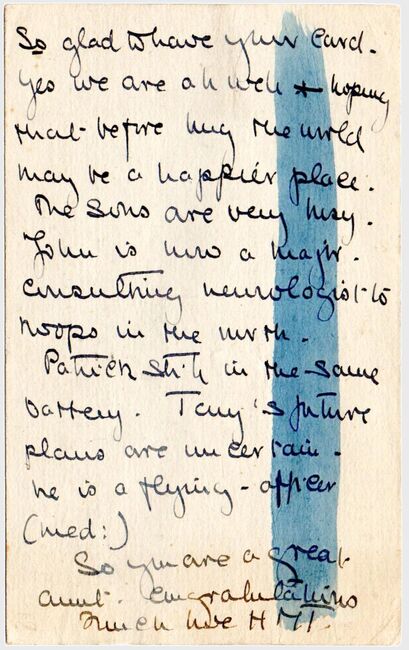 So glad to have your card.
Yes we are all well + hoping
that before long the world
may be a happier place.
The Sons are very busy.
John is now a major.
Consulting neurologist to
troops in the north.
Patrick still in the same
battery. Tony's future
plans are uncertain -
he is a flying-officer
(med:)
So you are a great
aunt. Congratulations
much love HMT.